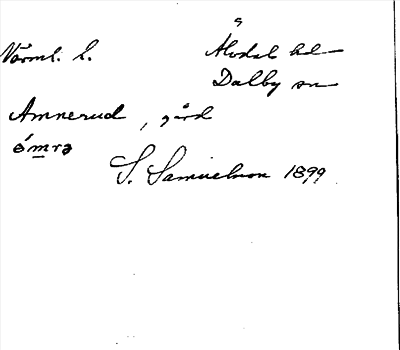 Värml. l. Älvdal hd
Dalby sn
Amnerud, gård
S. Samuelson 1899